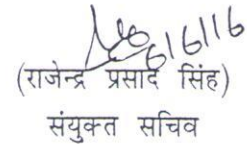 6/6/16
(राजेन्द्र प्रसाद सिंह)
संयुक्त सचिव